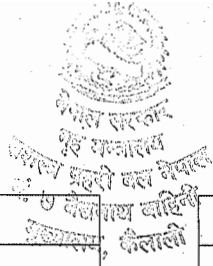 नेपाल सरकार
गृह मन्त्रालय
सशस्त्र प्रहरी बल नेपाल
वैद्यनाथ वाहिनी
कैलाली